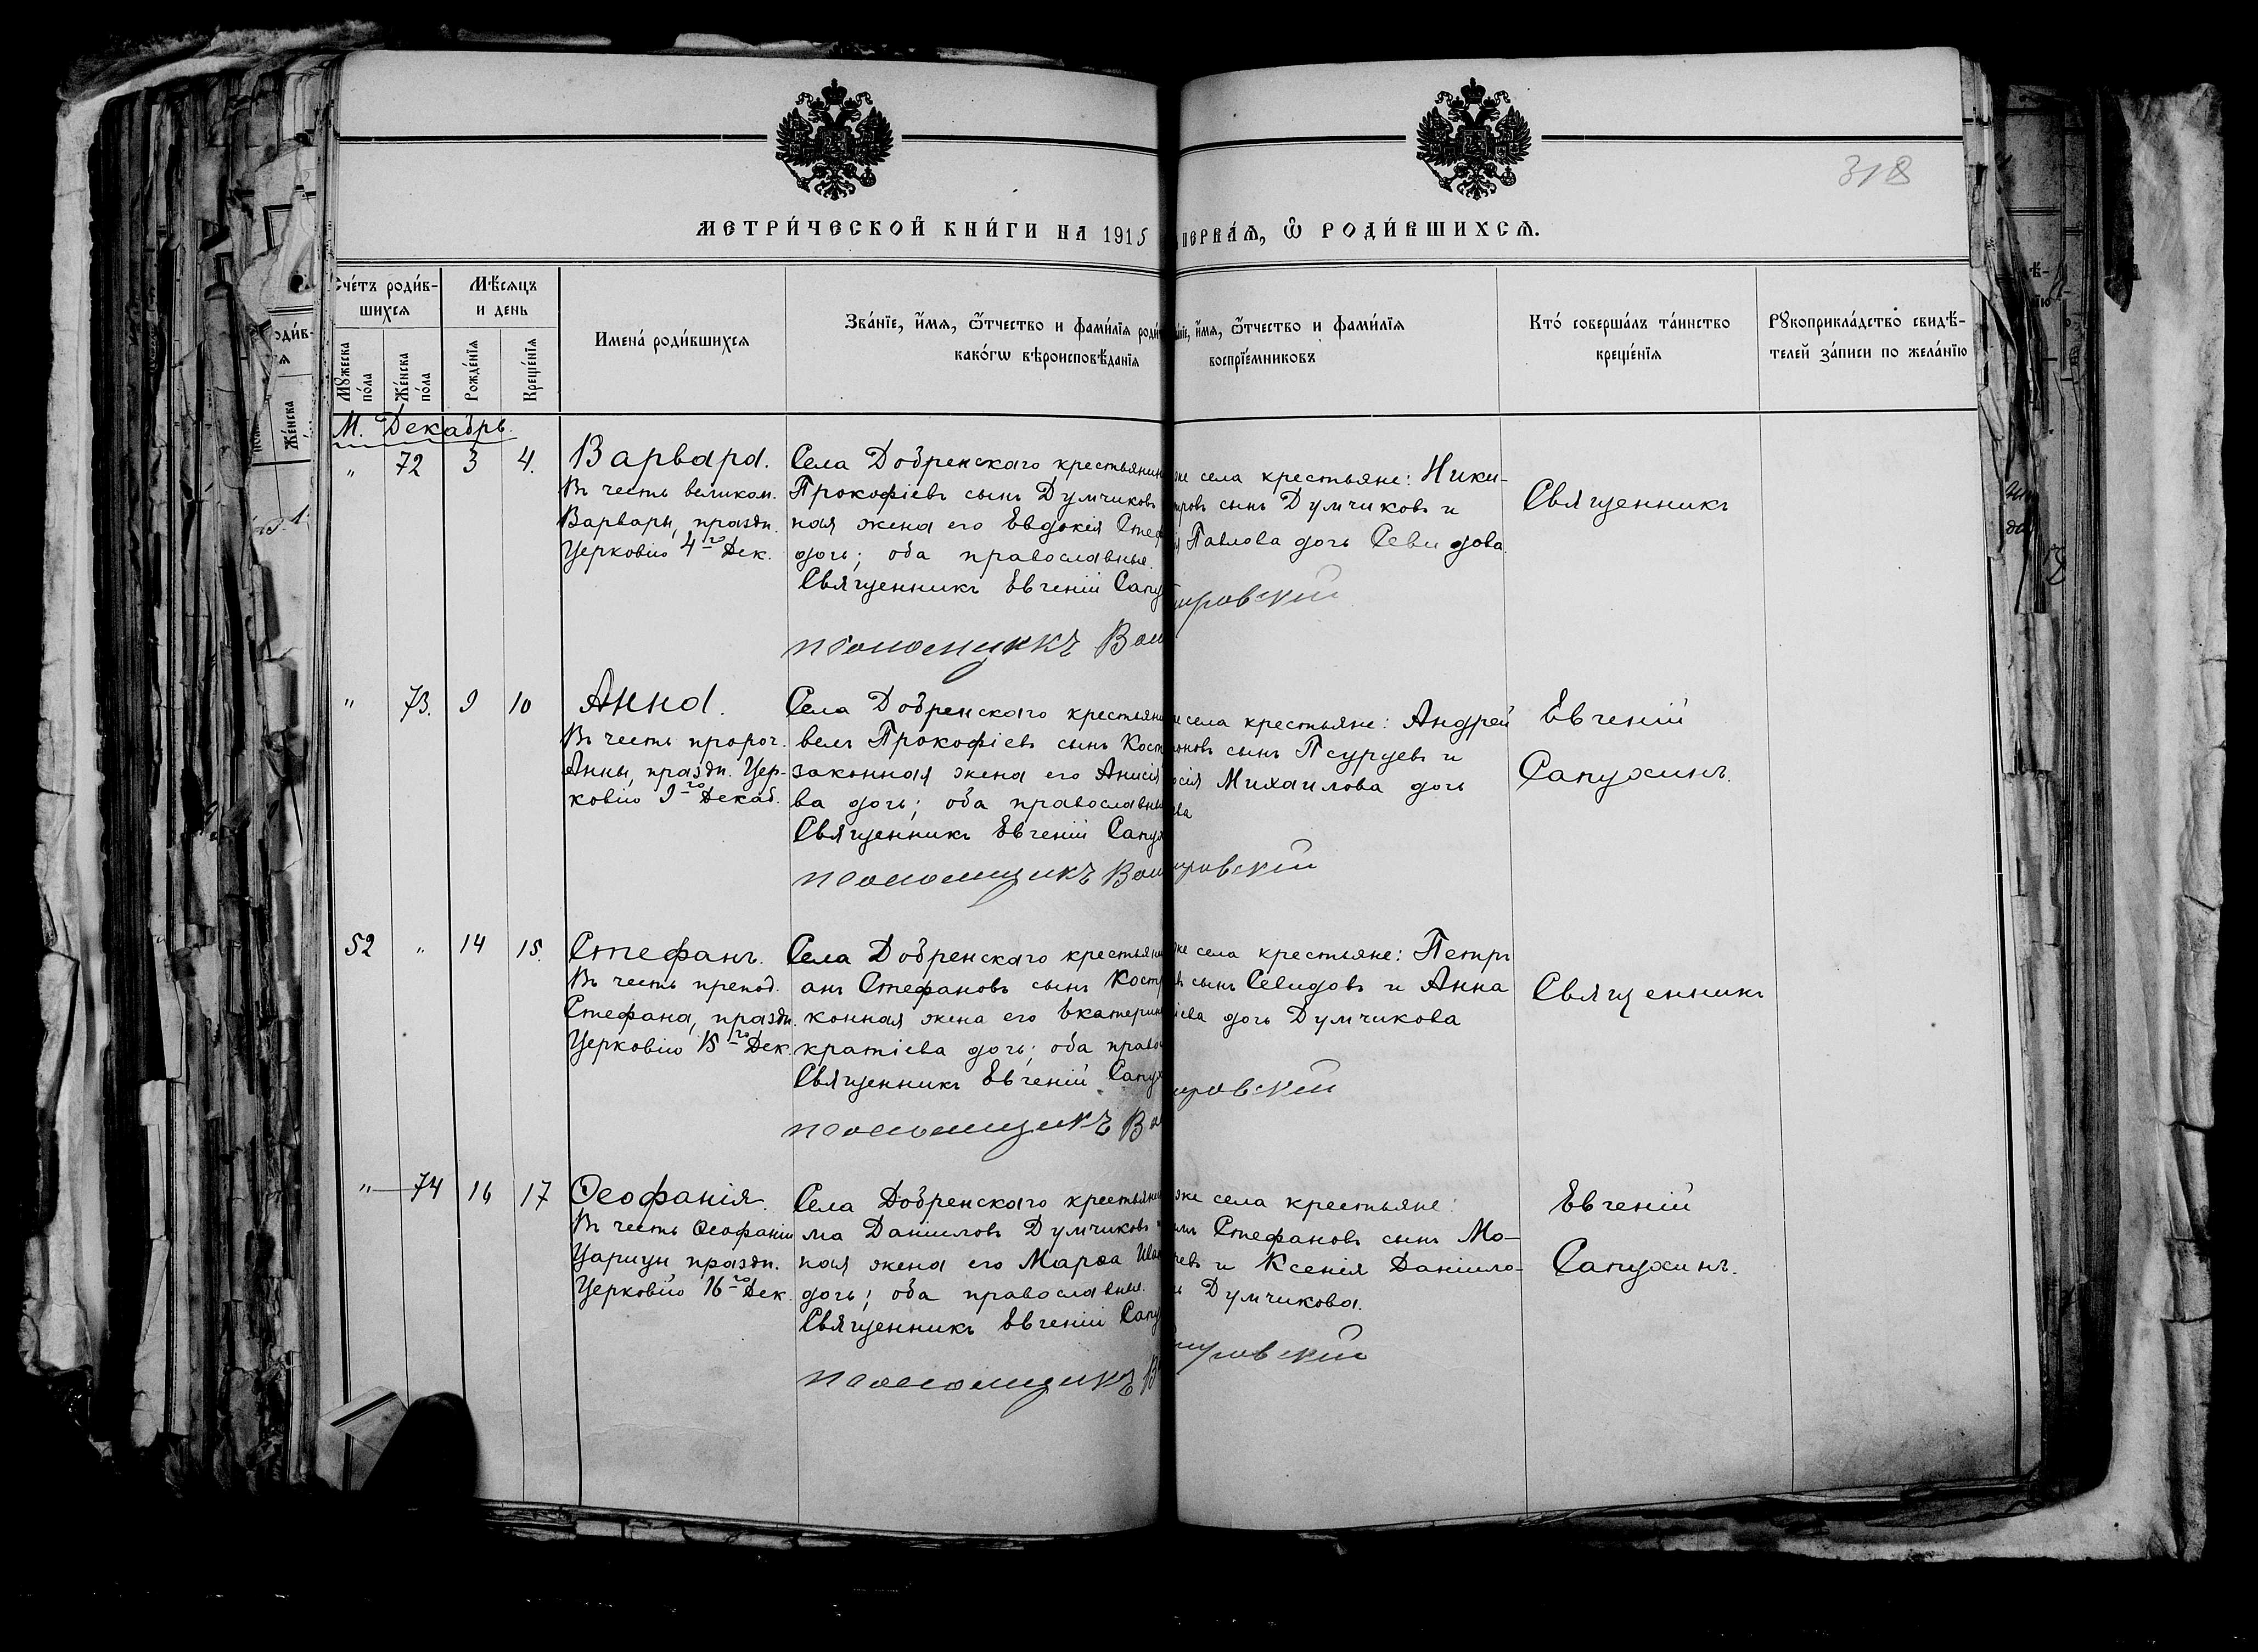 318
МЕТРИ́ЧЕСКОЙ КНИ́ГИ НА 1915
ПЕРВА́Я, Ѡ҆ РОДИ́ВШИХСЯ.
Сче́тъ роди́в-
шихся
Мѣ́сяцъ
и день
Мꙋ́жеска по́ла
Же́нска по́ла
Рожде́нїя
Креще́нїя
Имена́ роди́вшихся
Зва́нїе, и҆́мя, ѻ҆́тчество и фами́лїя роди
како́гѡ вѣроисповѣ́данїя
и҆́мя, ѻ҆́тчество и фами́лїя
воспрїе́мниковъ
Кто́ соверша́лъ та́инство
креще́нїя
Рꙋкоприкла́дство свидѣ́-
телей за́писи по жела́нїю
М. Декабрь.
" 72 3 4.
Варвара.
Въ честь великом.
Варвары, праздн.
Церковію 4го Дек.
Села Добренскаго крестьянин
Прокофіевъ сынъ Думчиковъ
ная жена его Евдокія Стеф
дочь; оба православные.
Священникъ Евгеній Сапу
псаломщикъ
же села крестьяне: Ники-
тровъ сынъ Думчиковъ и
Павлова дочь Севидова.
ировскій
Священникъ
" 73. 9 10
Анна.
Въ честь пророч.
Анны, праздн. Цер-
ковію 9го Декаб.
Села Добренскаго крестьяни
велъ Прокофіевъ сынъ Кост
законная жена его Анисія
ва дочь; оба православны
Священникъ Евгеній Сапу
псаломщикъ
села крестьяне: Андрей
оновъ сынъ Псурцевъ и
осія Михаилова дочь
ева
ировскій
Евгеній
Сапухинъ.
52 " 14 15.
Стефанъ.
Въ честь препод.
Стефана, праздн.
Церковію 15го Дек.
Села Добренскаго крестьяни
анъ Стефановъ сынъ Костр
конная жена его Екатерин
кратіева дочь; оба право
Священникъ Евгеній Сапу
псаломщикъ
же села крестьяне: Петръ
въ сынъ Севидовъ и Анна
іева дочь Думчикова
ировскій
Священникъ
" 74 16 17
Ѳеофанія.
Въ честь Ѳеофаніи
Царицы праздн.
Церковію 16го Дек.
Села Добренскаго крестьяни
ма Даніиловъ Думчиковъ
ная жена его Марѳа Ива
дочь; оба православные.
Священникъ Евгеній Сапу
псаломщикъ
же села крестьяне:
илъ Стефановъ сынъ Мо-
чевъ и Ксенія Даніило-
ь Думчикова.
ировскій
Евгеній
Сапухинъ.